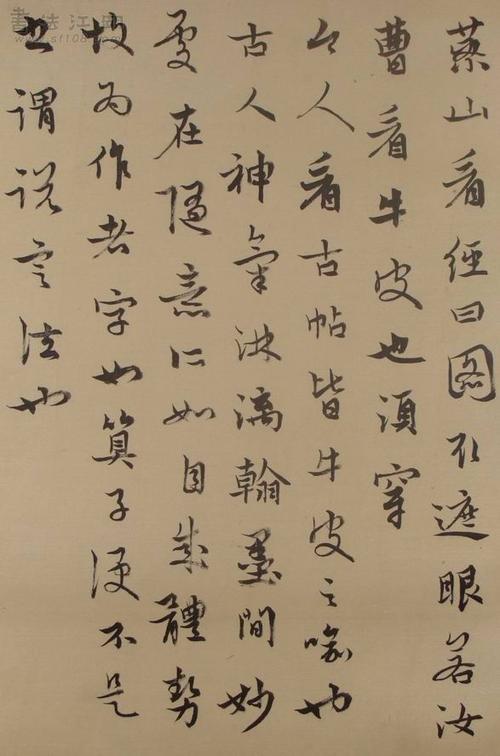 藥山看經曰圖取遮眼若汝
曹看牛皮也須穿
今人看古帖皆牛皮之喻也
古人神氣淋漓翰墨間妙
處在隨意所如自成體勢
故為作者字如算子便不是
書謂說定法也
書法江湖
www.sf108.com